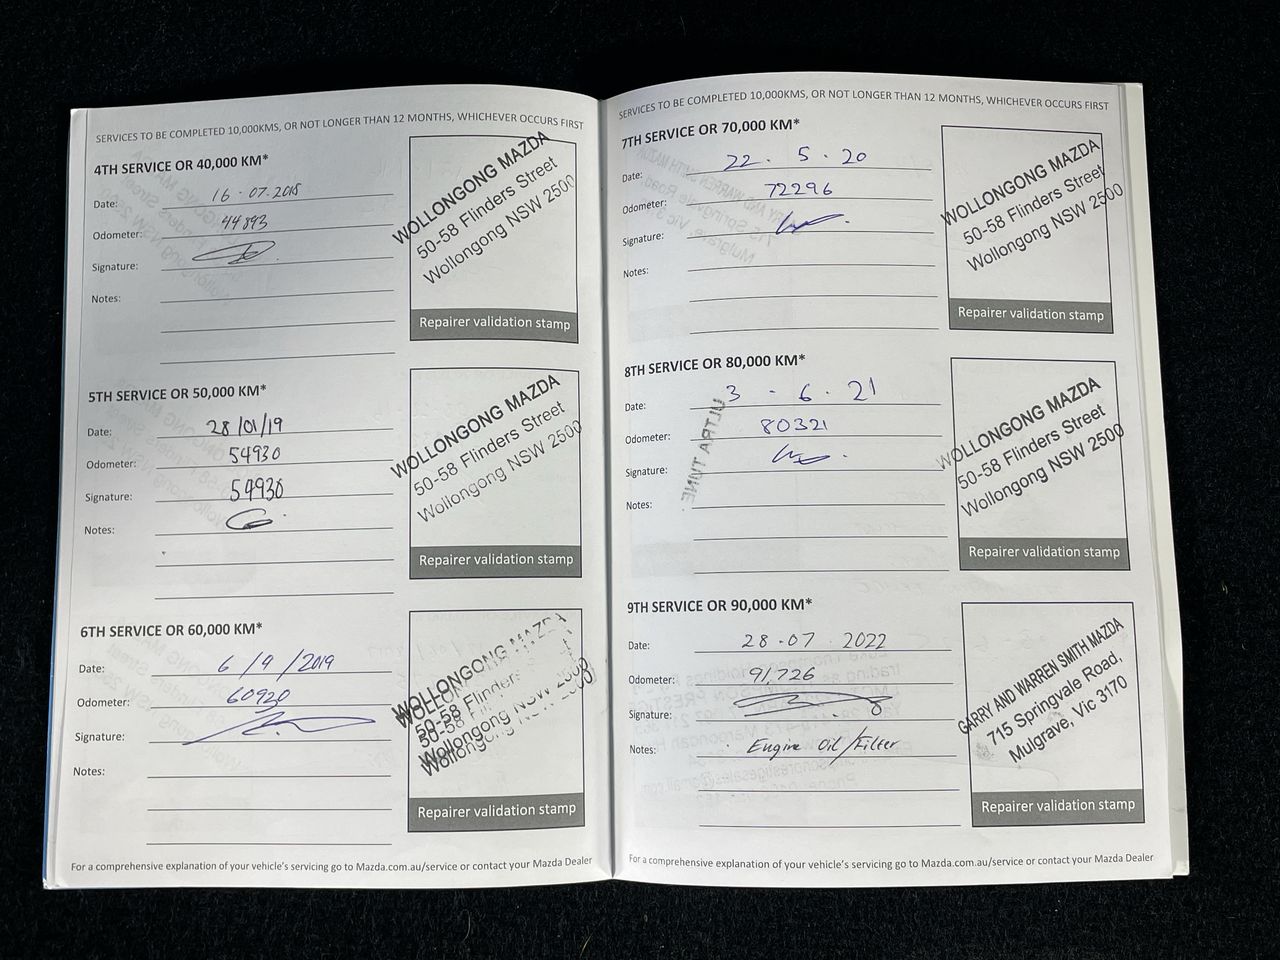 SERVICES TO BE COMPLETED 10,000KMS, OR NOT LONGER THAN 12 MONTHS, WHICHEVER OCCURS FIRST
4TH SERVICE OR 40,000 KM*
Date: 16-07.2018
Odometer: 44893
Signature:
Notes:
WOLLONGONG MAZDA
50-58 Flinders Street
Wollongong NSW 2500
Repairer validation stamp
5TH SERVICE OR 50,000 KM*
Date: 28/01/19
Odometer: 54930
Signature: 54930
Notes:
WOLLONGONG MAZDA
50-58 Flinders Street
Wollongong NSW 2500
Repairer validation stamp
6TH SERVICE OR 60,000 KM*
Date: 6/9/2019
Odometer: 60920
Signature:
Notes:
WOLLONGONG MAZDA
50-58 Flinders
Wollongong NSW 2500
Repairer validation stamp
For a comprehensive explanation of your vehicle's servicing go to Mazda.com.au/service or contact your Mazda Dealer
SERVICES TO BE COMPLETED 10,000KMS, OR NOT LONGER THAN 12 MONTHS, WHICHEVER OCCURS FIRST
7TH SERVICE OR 70,000 KM*
Date: 22.5.20
Odometer: 72296
Signature:
Notes:
WOLLONGONG MAZDA
50-58 Flinders Street
Wollongong NSW 2500
Repairer validation stamp
8TH SERVICE OR 80,000 KM*
Date: 3-6.21
Odometer: 80321
Signature:
Notes:
ULTRA TUNE
WOLLONGONG MAZDA
50-58 Flinders Street
Wollongong NSW 2500
Repairer validation stamp
9TH SERVICE OR 90,000 KM*
Date: 28.07.2022
Odometer: 91,726
Signature:
Notes: Engine Oil/Filter
GARRY AND WARREN SMITH MAZDA
715 Springvale Road,
Mulgrave, Vic 3170
Repairer validation stamp
For a comprehensive explanation of your vehicle's servicing go to Mazda.com.au/service or contact your Mazda Dealer